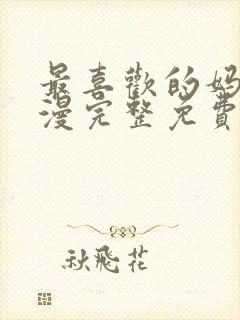 最喜歡的媽
漫完整免費
秋飛花